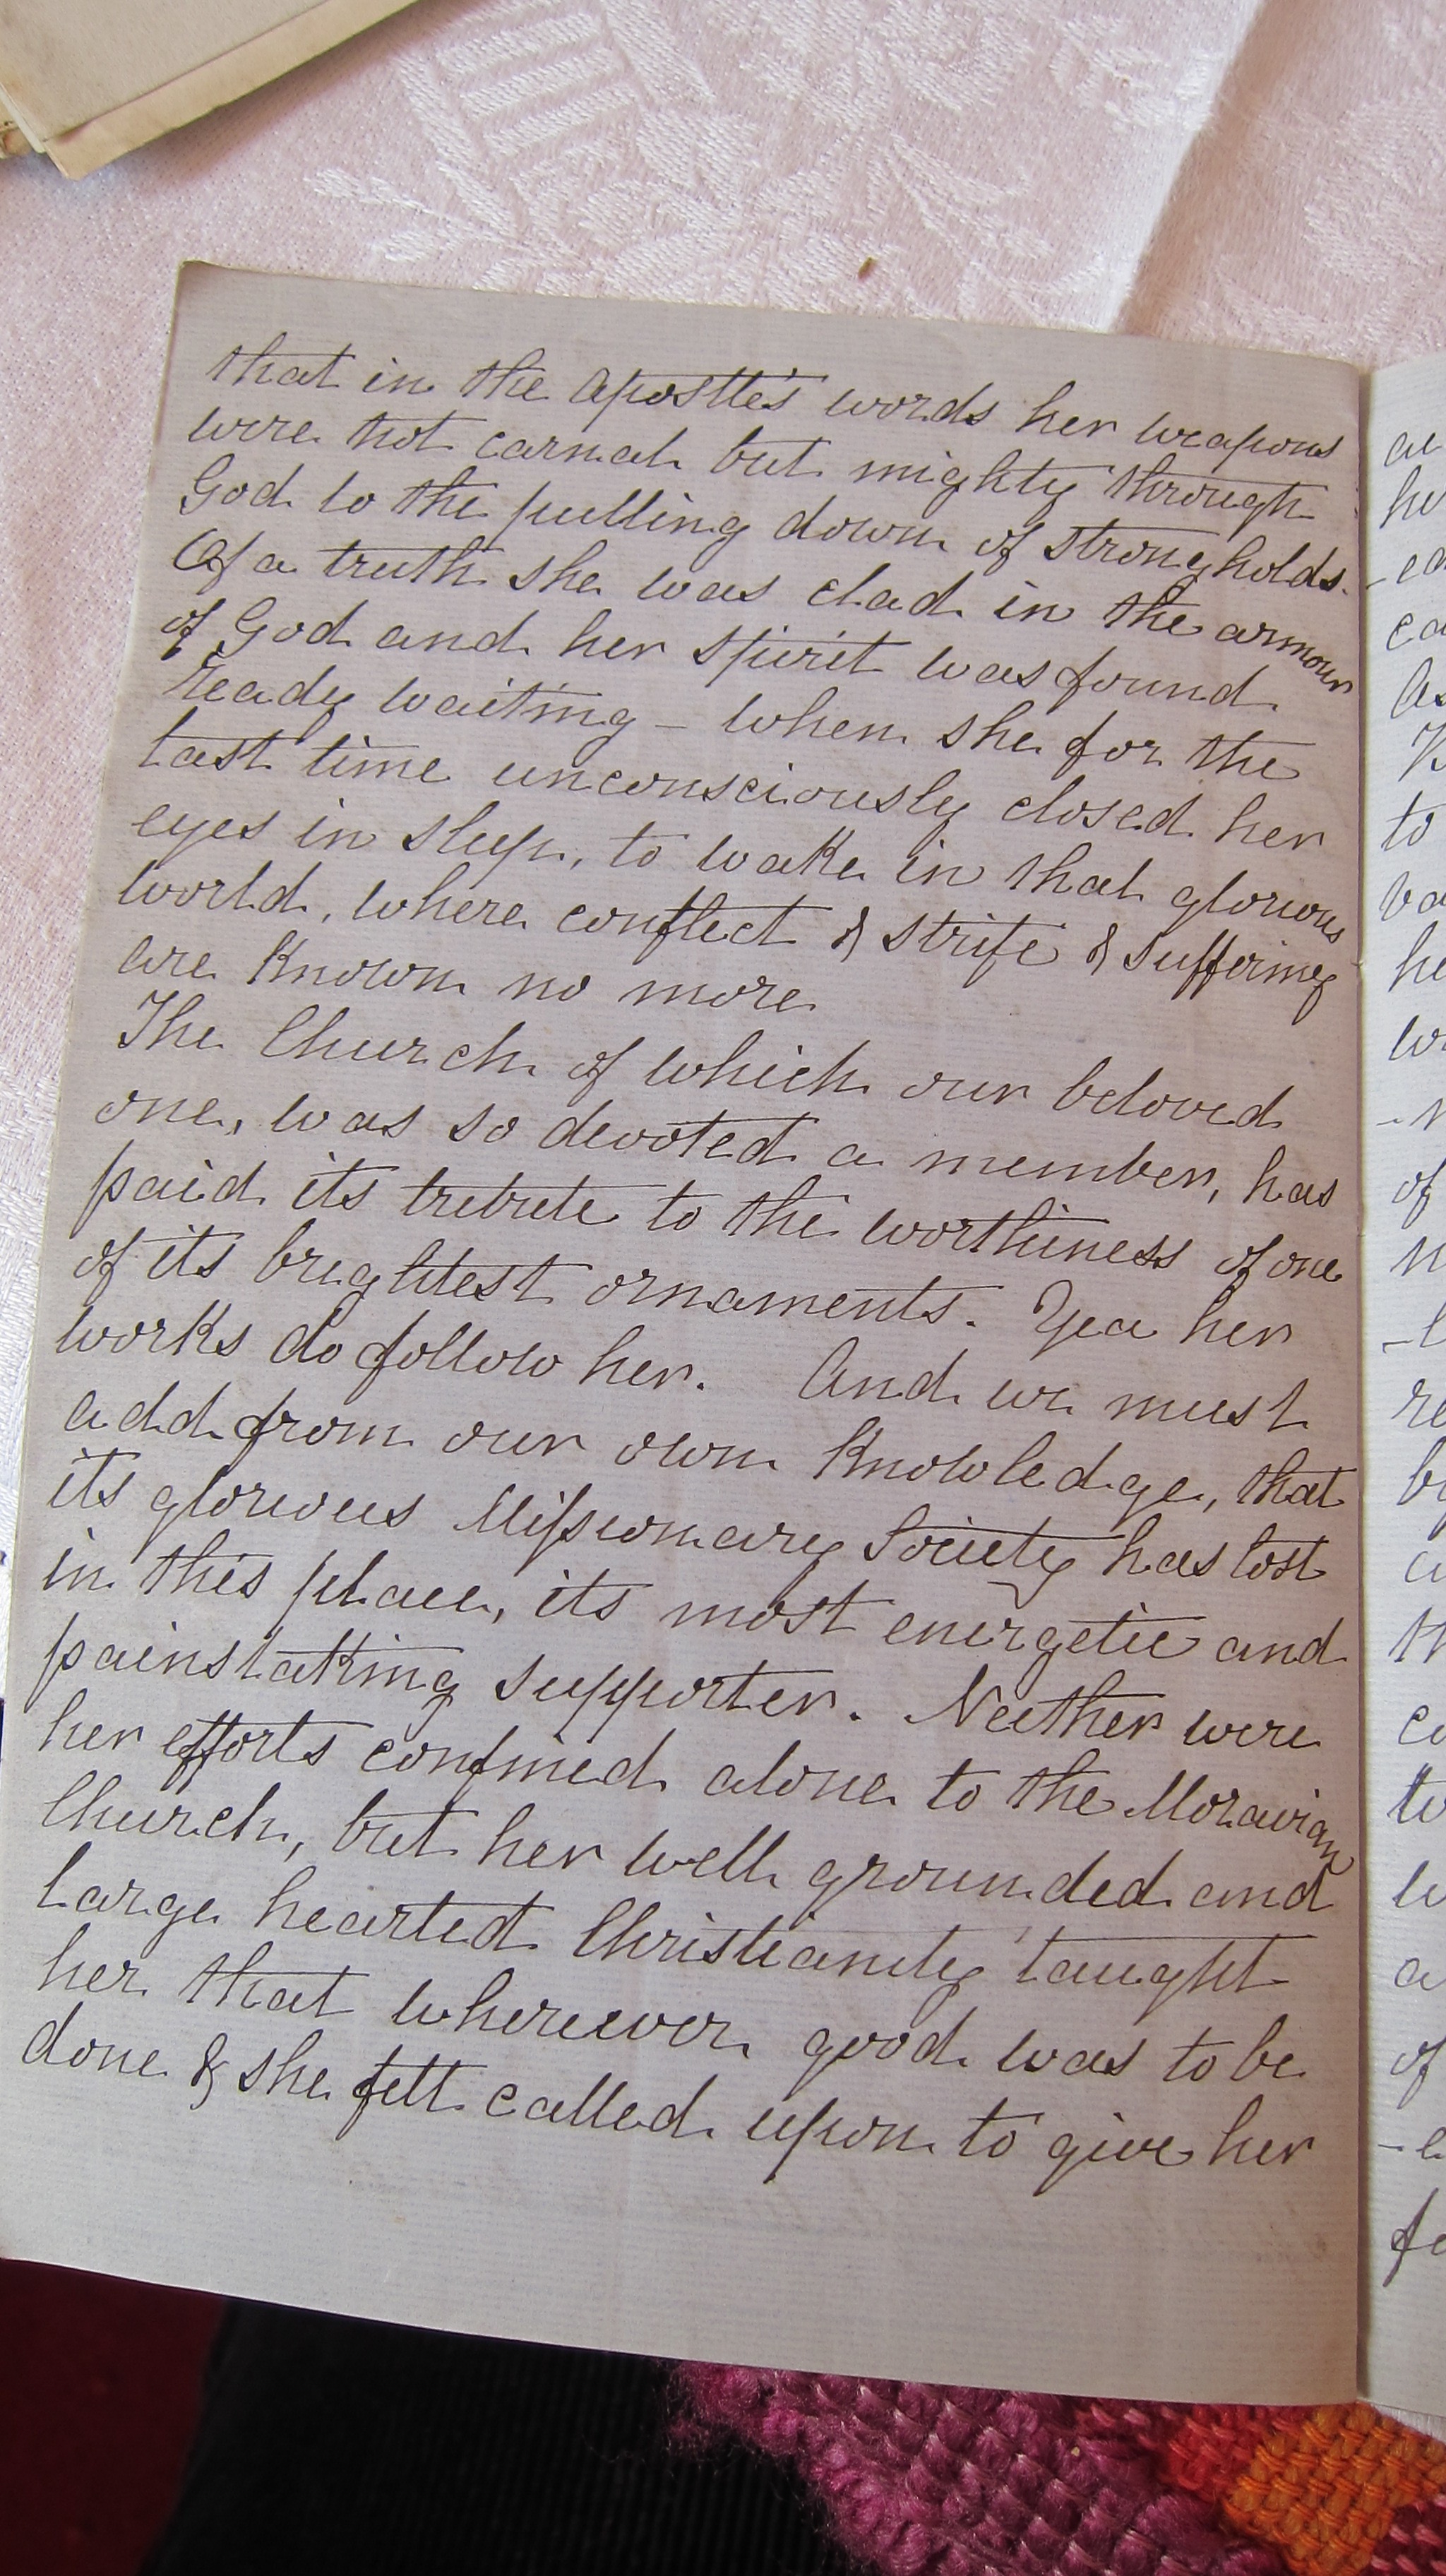 that in the Apostle's words her weapons
were not carnal but mighty through
God to the pulling down of strongholds.
Of a truth she was clad in the armour
of God and her spirit was found
ready waiting – when she for the
last time unconsciously closed her
eyes in sleep, to wake in that glorious
world, where conflict & strife & suffering
are known no more
The Church of which our beloved
one, was so devoted a member, has
paid its tribute to the worthiness of one
of its brightest ornaments. Yea her
works do follow her. And we must
add from our own knowledge, that
its glorious Mifsionary Society has lost
in this place, its most energetic and
painstaking supporter. Neither were
her efforts confined alone to the Moravian
Church, but her well grounded and
large hearted Christianity taught
her that wherever good was to be
done & she felt called upon to give her